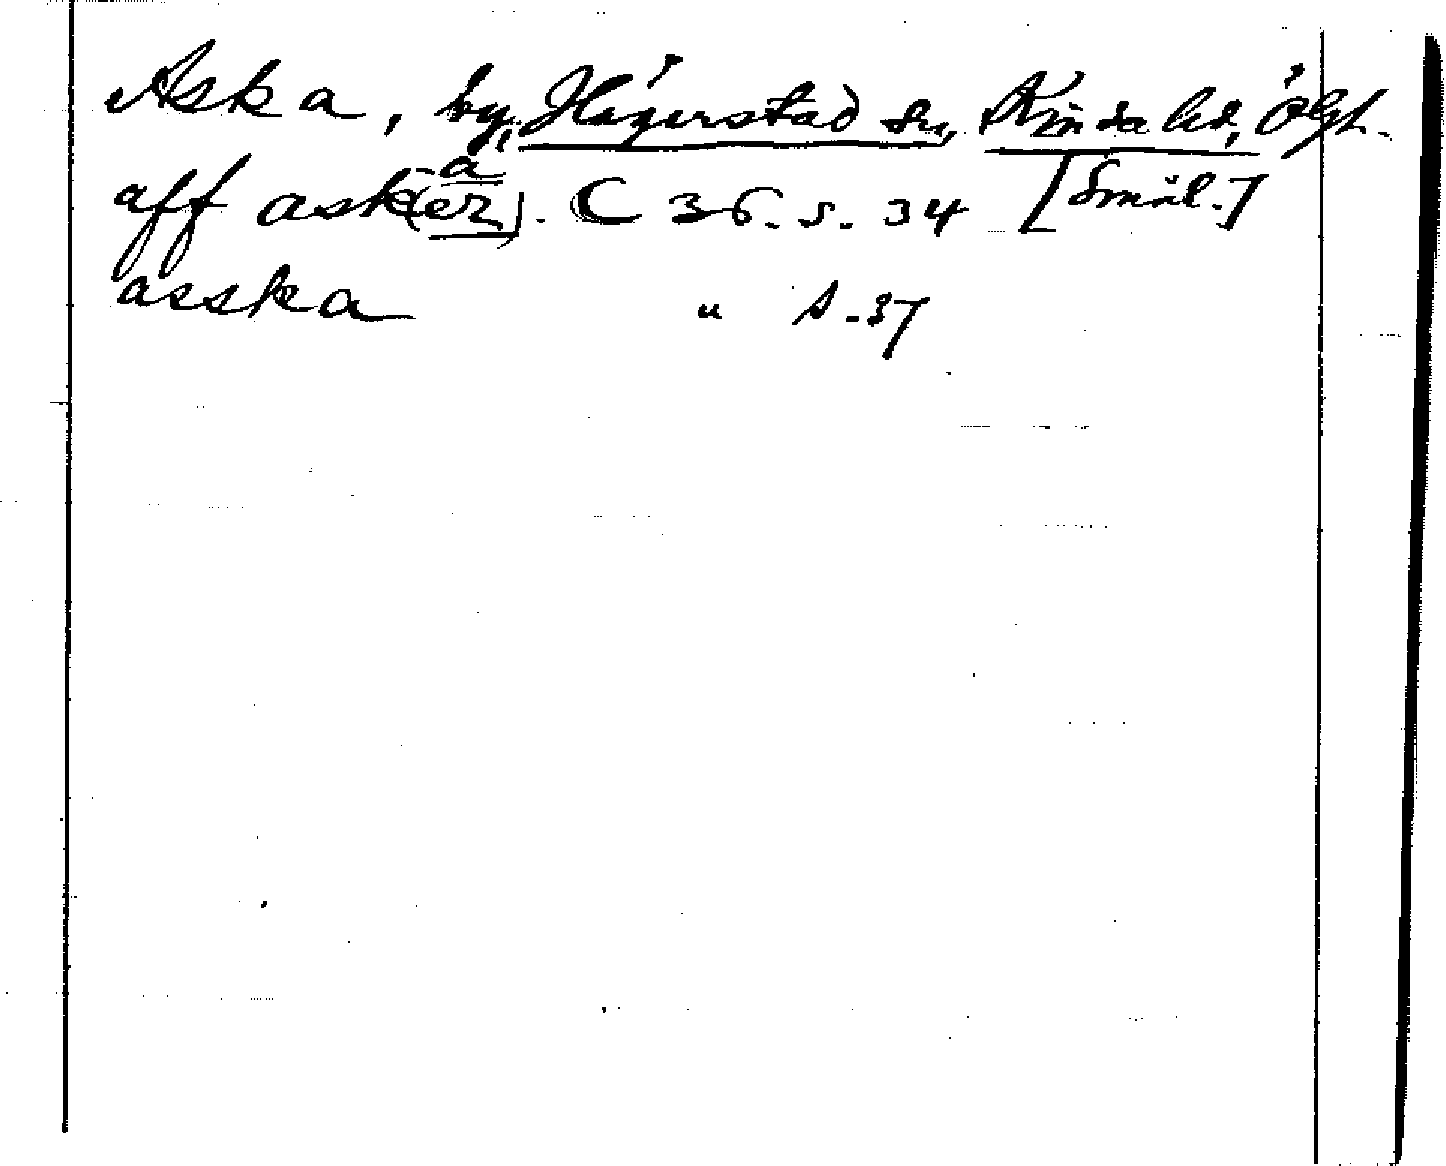 Aska, by, Hägerstad sn, Kinda hd, Ögl.
aff ask(er)a. C 36. s. 34 [Smål.]
asska " s. 37